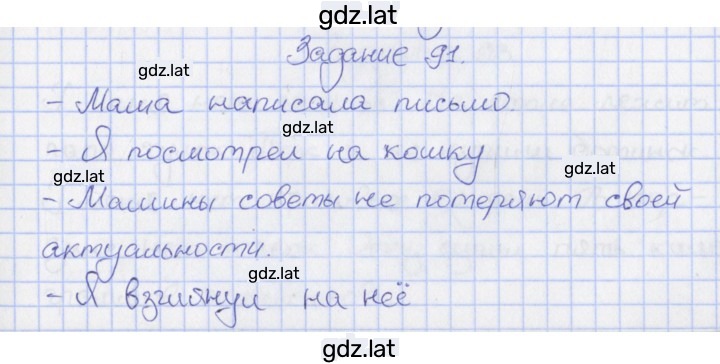 gdz.lat
Задание 91.
gdz.lat
- Мама написала письмо.
gdz.lat
- Я посмотрел на кошку
gdz.lat gdz.lat
- Мамины советы не потеряют своей
актуальности.
gdz.lat
- Я взглянул на неё
gdz.lat